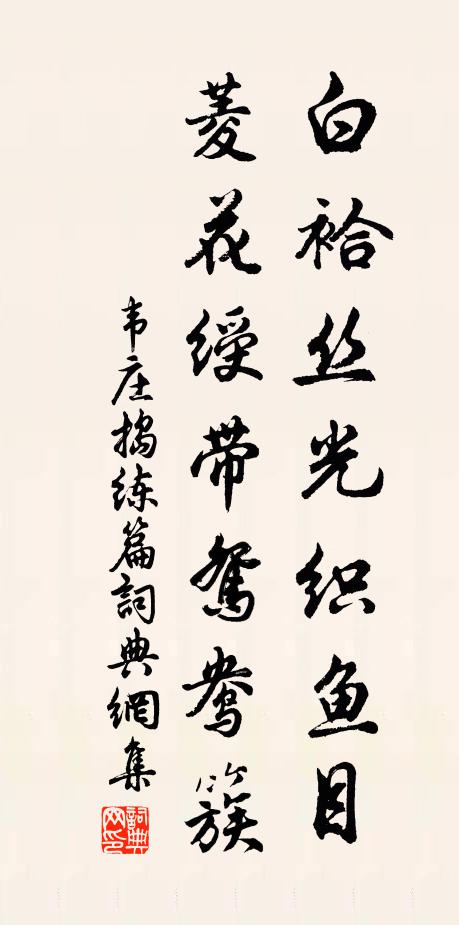 白袷丝光织鱼目
菱花绶带鸳鸯簇
韦庄捣练篇詞典網集
詞典
网印